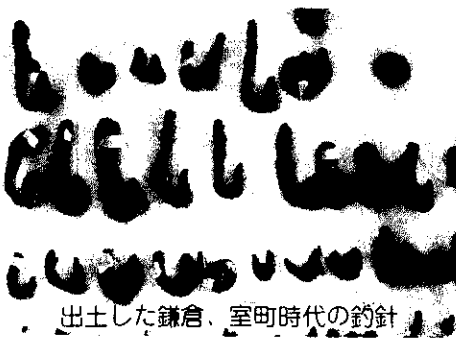 出土した鎌倉、室町時代の釣針